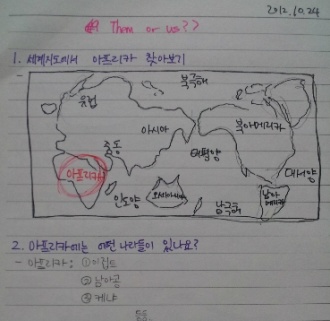 2012.10.24
Them or us??
1. 세계지도에서 아프리카 찾아보기
북극해
유럽
아시아
북아메리카
중동
태평양
대서양
아프리카
인도양
오세아니아
남극해
남아메리카
2. 아프리카에는 어떤 나라들이 있나요?
- 아프리카: ①이집트
②남아공
③케냐